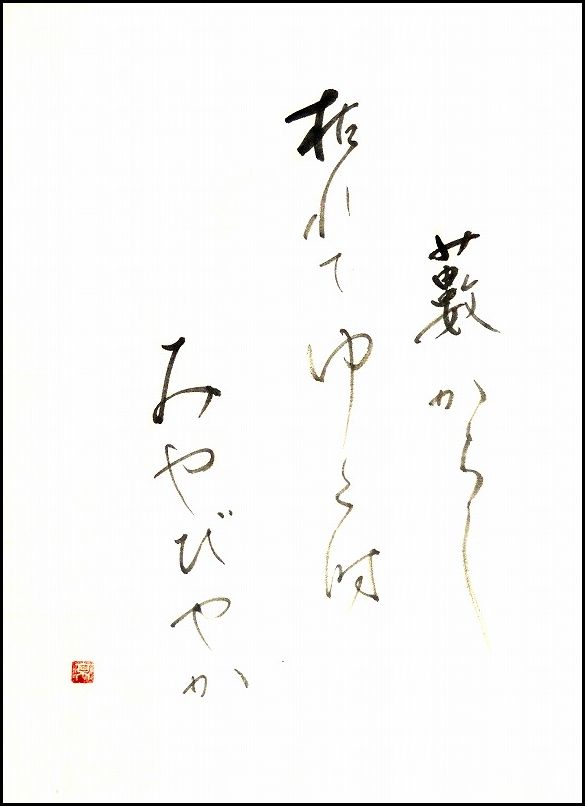 藪からし
枯れてゆく時
みやびやか